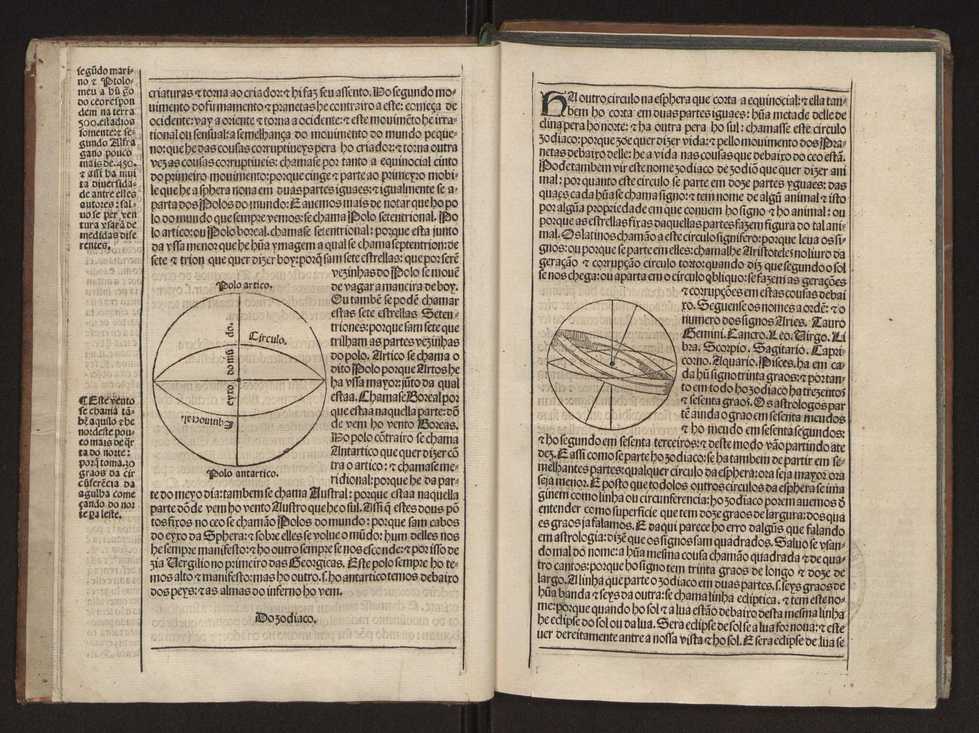 segũdo mari-
no & Ptolo-
meu a hũ go
do ceo respon
dem na terra
500. estadios
somente: & se-
gundo Alfra
gano pouco
mais de .450.
& assi ha mui
ta diuersida-
de antre estes
autores: sal-
uo se per ven
tura vsarã de
medidas dife
rentes.
criaturas & torna ao criador: & hi faz seu assento. Ho segundo mo-
uimento do firmamento & pranetas he contrairo a este: começa de
ocidente: vay a oriente & torna a ocidente: & este mouimẽto he irra-
tional ou sensual: a semelhança do mouimento do mundo peque-
no: que he das cousas corruptiueys pera ho criador: & torna outra
vez as cousas corruptiueis: chamase por tanto a equinocial cinto
do primeiro mouimento: porque cinge & parte ao primeyro mobi-
le que he a sphera nona em duas partes iguaes: & igualmente se a-
parta dos Polos do mundo: E auemos mais de notar que ho po
lo do mundo que sempre vemos: se chama Polo setentrional. Po
lo artico: ou Polo boreal. chamase setentrional: porque esta junto
da vssa menor que he hũa ymagem a qual se chama septentrion: de
sete & trion que quer dizer boy: porq̃ sam sete estrellas: que por serẽ
vezinhas do Polo se mouẽ
de vagar a maneira de boy.
Ou tambẽ se podẽ chamar
estas sete estrellas Seten-
triones: porque sam sete que
trilham as partes vezinhas
do polo. Artico se chama o
dito Polo porque Artos he
ha vssa mayor: jũto da qual
estaa. Chamase Boreal por
que estaa naquella parte: dõ
de vem ho vento Boreas.
Ho polo cõtrairo se chama
Antartico que quer dizer cõ
tra o artico: & chamase me-
ridional: porque he da par-
te do meyo dia: tambem se chama Austral: porque estaa naquella
parte dõde vem ho vento Austro que he o sul. Assi q̃ estes dous põ
tos firos no ceo se chamão Polos do mundo: porque sam cabos
do eyxo da Sphera: & sobre elles se volue o mũdo: hum delles nos
he sempre manifesto: & ho outro sempre se nos esconde: & por isso de
zia Vergilio no primeiro das Georgicas. Este polo sempre ho te-
mos alto & manifesto: mas ho outro .s. ho antartico temos debaixo
dos peys: & as almas do inferno ho vem.
Do zodiaco.
Polo artico.
Circulo.
eyxo do mũdo
Equinocial
Polo antartico.
¶ Este vẽto
se chama tã-
bẽ aquilo & he
nordeste pou-
co mais de q̃r
ta do norte:
porq̃ toma .30
graos da cir
cũferẽcia da
agulha come
çando do nor
te pa leste.
HA outro circulo na esphera que corta a equinocial: & ella tam-
bem ho corta em duas partes iguaes: hũa metade delle de
clina pera ho norte: & ha outra pera ho sul: chamasse este circulo
zodiaco: porque zóe quer dizer vida: & pello mouimento dos Pra
netas debaixo delle: he a vida nas cousas que debaixo do ceo estã.
Pode tambem vir este nome zodiaco de zodiõ que quer dizer ani
mal: por quanto este circulo se parte em doze partes yguaes: das
quaes cada hũa se chama signo: & tem nome de algũ animal & isto
por algũa propriedade em que conuem ho signo & ho animal: ou
porque as estrellas fixas daquellas partes fazem figura do tal ani-
mal. Os latinos chamão a este circulo signifero: porque leua os si-
gnos: ou porque se parte em elles: chamalhe Aristoteles no liuro da
geração & corrupção circulo torto: quando diz que segundo o sol
se nos chega: ou aparta em o circulo obliquo: se fazem as gerações
& corrupções em estas cousas debai
xo. Seguense os nomes a ordẽ: & o
numero dos signos Aries. Tauro
Gemini. Cancro. Leo. Virgo. Li
bra. Scorpio. Sagitario. Capri
corno. Aquario. Pisces. ha em ca-
da hũ signo trinta graos: & portan-
to em todo ho zodiaco ha trezentos
& sesenta graos. Os astrologos par
tẽ ainda o grao em sesenta meudos
& ho meudo em sesenta segundos:
& ho segundo em sesenta terceiros: & deste modo vão partindo ate
dez. E assi como se parte ho zodiaco: se ha tambem de partir em se-
melhantes partes: qualquer circulo da esphera: ora seja mayor ora
seja menor. E posto que todolos outros circulos da esphera se ima
ginem como linha ou circunferencia: ho zodiaco porem auemos d̃
entender como superficie que tem doze graos de largura: dos qua
es graos ja falamos. E daqui parece ho erro dalgũs que falando
em astrologia: dizẽ que os signos sam quadrados. Saluo se vsan-
do mal do nome: a hũa mesma cousa chamão quadrada & de qua-
tro cantos: porque ho signo tem trinta graos de longo & doze de
largo. A linha que parte o zodiaco em duas partes .s. seys graos de
hũa banda & seys da outra: se chama linha ecliptica. & tem este no-
me: porque quando ho sol & a lua estão debaixo desta mesma linha
he eclipse do sol ou da lua. Sera eclipse de sol se a lua for noua: & este
uer dereitamente antre a nossa vista & ho sol. E sera eclipse de lua se